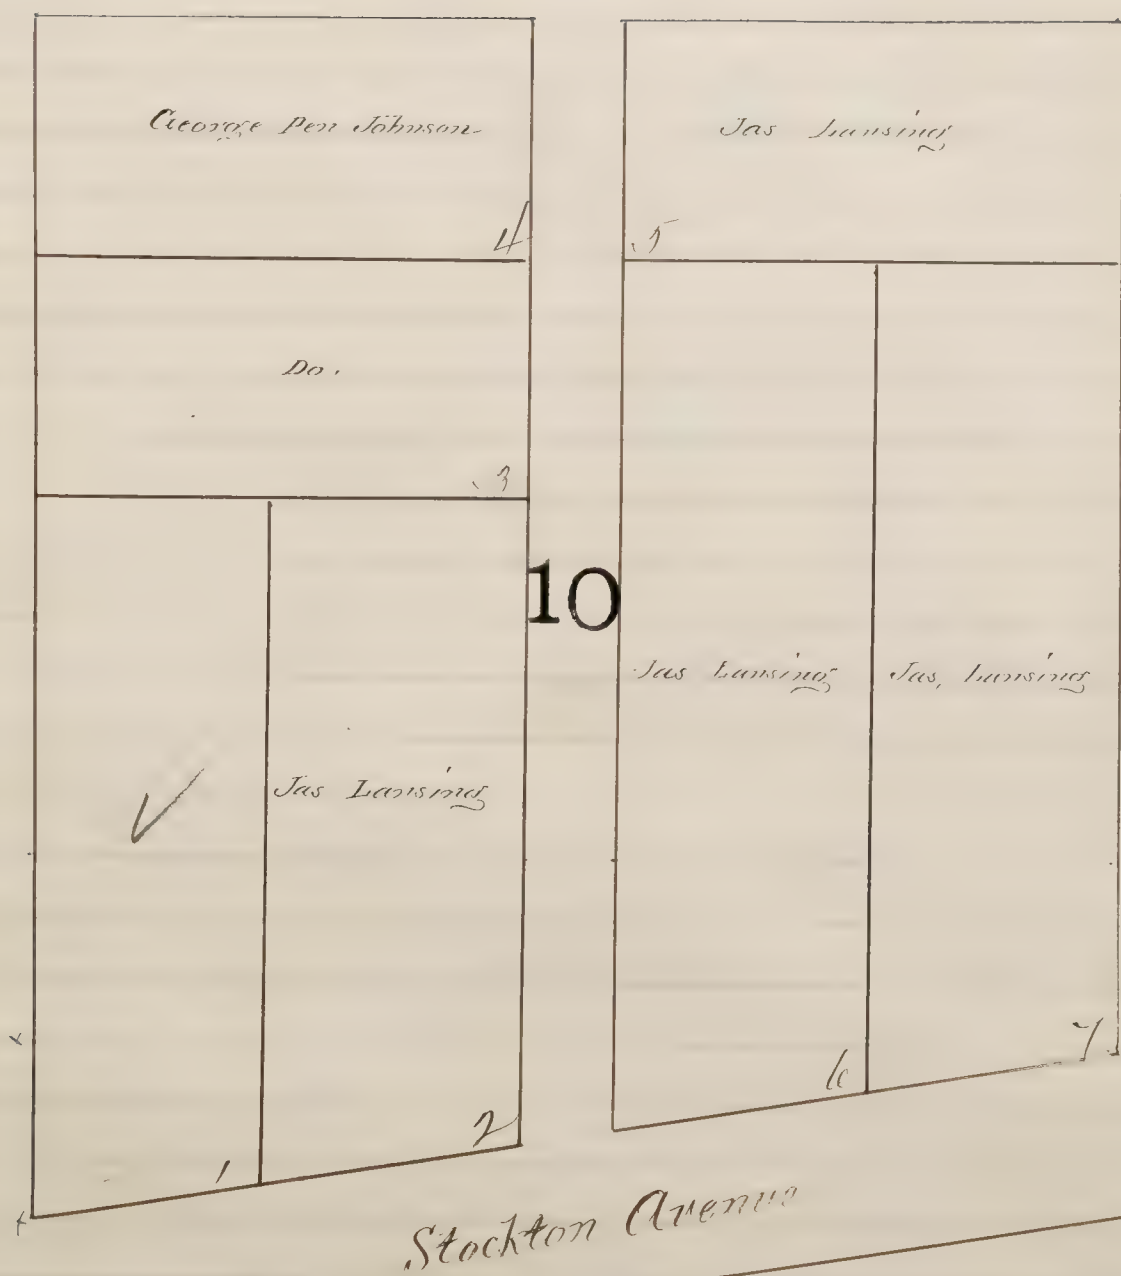 George Pen Johnson
Jas Lansing
4
5
Do.
3
10
Jas Lansing
Jas, Lansing
Jas Lansing
7
6
2
1
Stockton Avenue